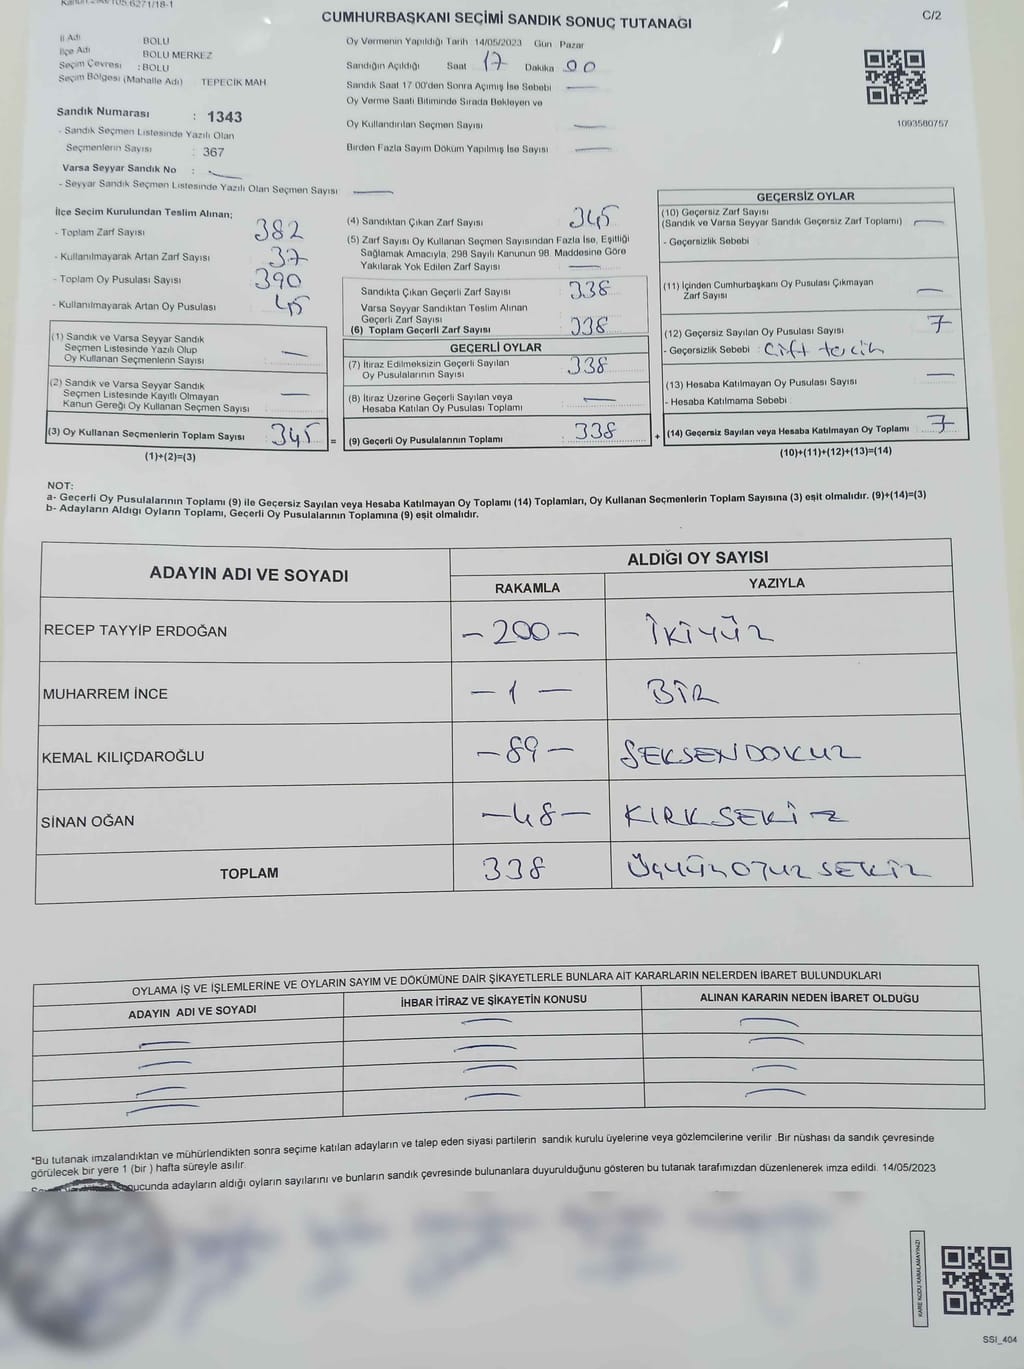 CUMHURBAŞKANI SEÇİMİ SANDIK SONUÇ TUTANAĞI
C/2
İl Adı BOLU
İlçe Adı BOLU MERKEZ
Seçim Çevresi : BOLU
Seçim Bölgesi (Mahalle Adı) TEPECİK MAH
Sandık Numarası : 1343
- Sandık Seçmen Listesinde Yazılı Olan
Seçmenlerin Sayısı : 367
Varsa Seyyar Sandık No :
- Seyyar Sandık Seçmen Listesinde Yazılı Olan Seçmen Sayısı
Oy Vermenin Yapıldığı Tarih 14/05/2023 Gün Pazar
Sandığın Açıldığı Saat 17 Dakika 00
Sandık Saat 17:00'den Sonra Açımış İse Sebebi
Oy Verme Saati Bitiminde Sırada Bekleyen ve
Oy Kullandırılan Seçmen Sayısı
Birden Fazla Sayım Döküm Yapılmış İse Sayısı
1093580757
İlçe Seçim Kurulundan Teslim Alınan;
- Toplam Zarf Sayısı 382
- Kullanılmayarak Artan Zarf Sayısı 37
- Toplam Oy Pusulası Sayısı 390
- Kullanılmayarak Artan Oy Pusulası 45
(1) Sandık ve Varsa Seyyar Sandık
Seçmen Listesinde Yazılı Olup
Oy Kullanan Seçmenlerin Sayısı
(2) Sandık ve Varsa Seyyar Sandık
Seçmen Listesinde Kayıtlı Olmayan
Kanun Gereği Oy Kullanan Seçmen Sayısı
(3) Oy Kullanan Seçmenlerin Toplam Sayısı 345 =
(1)+(2)=(3)
(4) Sandıktan Çıkan Zarf Sayısı 345
(5) Zarf Sayısı Oy Kullanan Seçmen Sayısından Fazla İse, Eşitliği
Sağlamak Amacıyla, 298 Sayılı Kanunun 98. Maddesine Göre
Yakılarak Yok Edilen Zarf Sayısı
Sandıkta Çıkan Geçerli Zarf Sayısı 338
Varsa Seyyar Sandıktan Teslim Alınan
Geçerli Zarf Sayısı
(6) Toplam Geçerli Zarf Sayısı 338
GEÇERLİ OYLAR
(7) İtiraz Edilmeksizin Geçerli Sayılan
Oy Pusulalarının Sayısı 338
(8) İtiraz Üzerine Geçerli Sayılan veya
Hesaba Katılan Oy Pusulası Toplamı
(9) Geçerli Oy Pusulalarının Toplamı 338 +
GEÇERSİZ OYLAR
(10) Geçersiz Zarf Sayısı
(Sandık ve Varsa Seyyar Sandık Geçersiz Zarf Toplamı)
- Geçersizlik Sebebi
(11) İçinden Cumhurbaşkanı Oy Pusulası Çıkmayan
Zarf Sayısı
(12) Geçersiz Sayılan Oy Pusulası Sayısı 7
- Geçersizlik Sebebi : Çift tercih
(13) Hesaba Katılmayan Oy Pusulası Sayısı
- Hesaba Katılmama Sebebi
(14) Geçersiz Sayılan veya Hesaba Katılmayan Oy Toplamı 7
(10)+(11)+(12)+(13)=(14)
NOT:
a- Geçerli Oy Pusulalarının Toplamı (9) ile Geçersiz Sayılan veya Hesaba Katılmayan Oy Toplamı (14) Toplamları, Oy Kullanan Seçmenlerin Toplam Sayısına (3) eşit olmalıdır. (9)+(14)=(3)
b- Adayların Aldığı Oyların Toplamı, Geçerli Oy Pusulalarının Toplamına (9) eşit olmalıdır.
ADAYIN ADI VE SOYADI
ALDIĞI OY SAYISI
RAKAMLA YAZIYLA
RECEP TAYYİP ERDOĞAN - 200 - İKİYÜZ
MUHARREM İNCE - 1 - BİR
KEMAL KILIÇDAROĞLU - 89 - SEKSENDOKUZ
SİNAN OĞAN - 48 - KIRKSEKİZ
TOPLAM 338 ÜÇYÜZOTUZSEKİZ
OYLAMA İŞ VE İŞLEMLERİNE VE OYLARIN SAYIM VE DÖKÜMÜNE DAİR ŞİKAYETLERLE BUNLARA AİT KARARLARIN NELERDEN İBARET BULUNDUKLARI
ADAYIN ADI VE SOYADI İHBAR İTİRAZ VE ŞİKAYETİN KONUSU ALINAN KARARIN NEDEN İBARET OLDUĞU
*Bu tutanak imzalandıktan ve mühürlendikten sonra seçime katılan adayların ve talep eden siyasi partilerin sandık kurulu üyelerine veya gözlemcilerine verilir .Bir nüshası da sandık çevresinde
görülecek bir yere 1 (bir ) hafta süreyle asılır.
adayların aldığı oyların sayılarını ve bunların sandık çevresinde bulunanlara duyurulduğunu gösteren bu tutanak tarafımızdan düzenlenerek imza edildi. 14/05/2023
KARE KODU KARALAMAYINIZ!
SSI_404